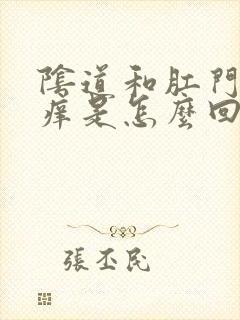 陰道和肛門
痒是怎麼回
張丕民